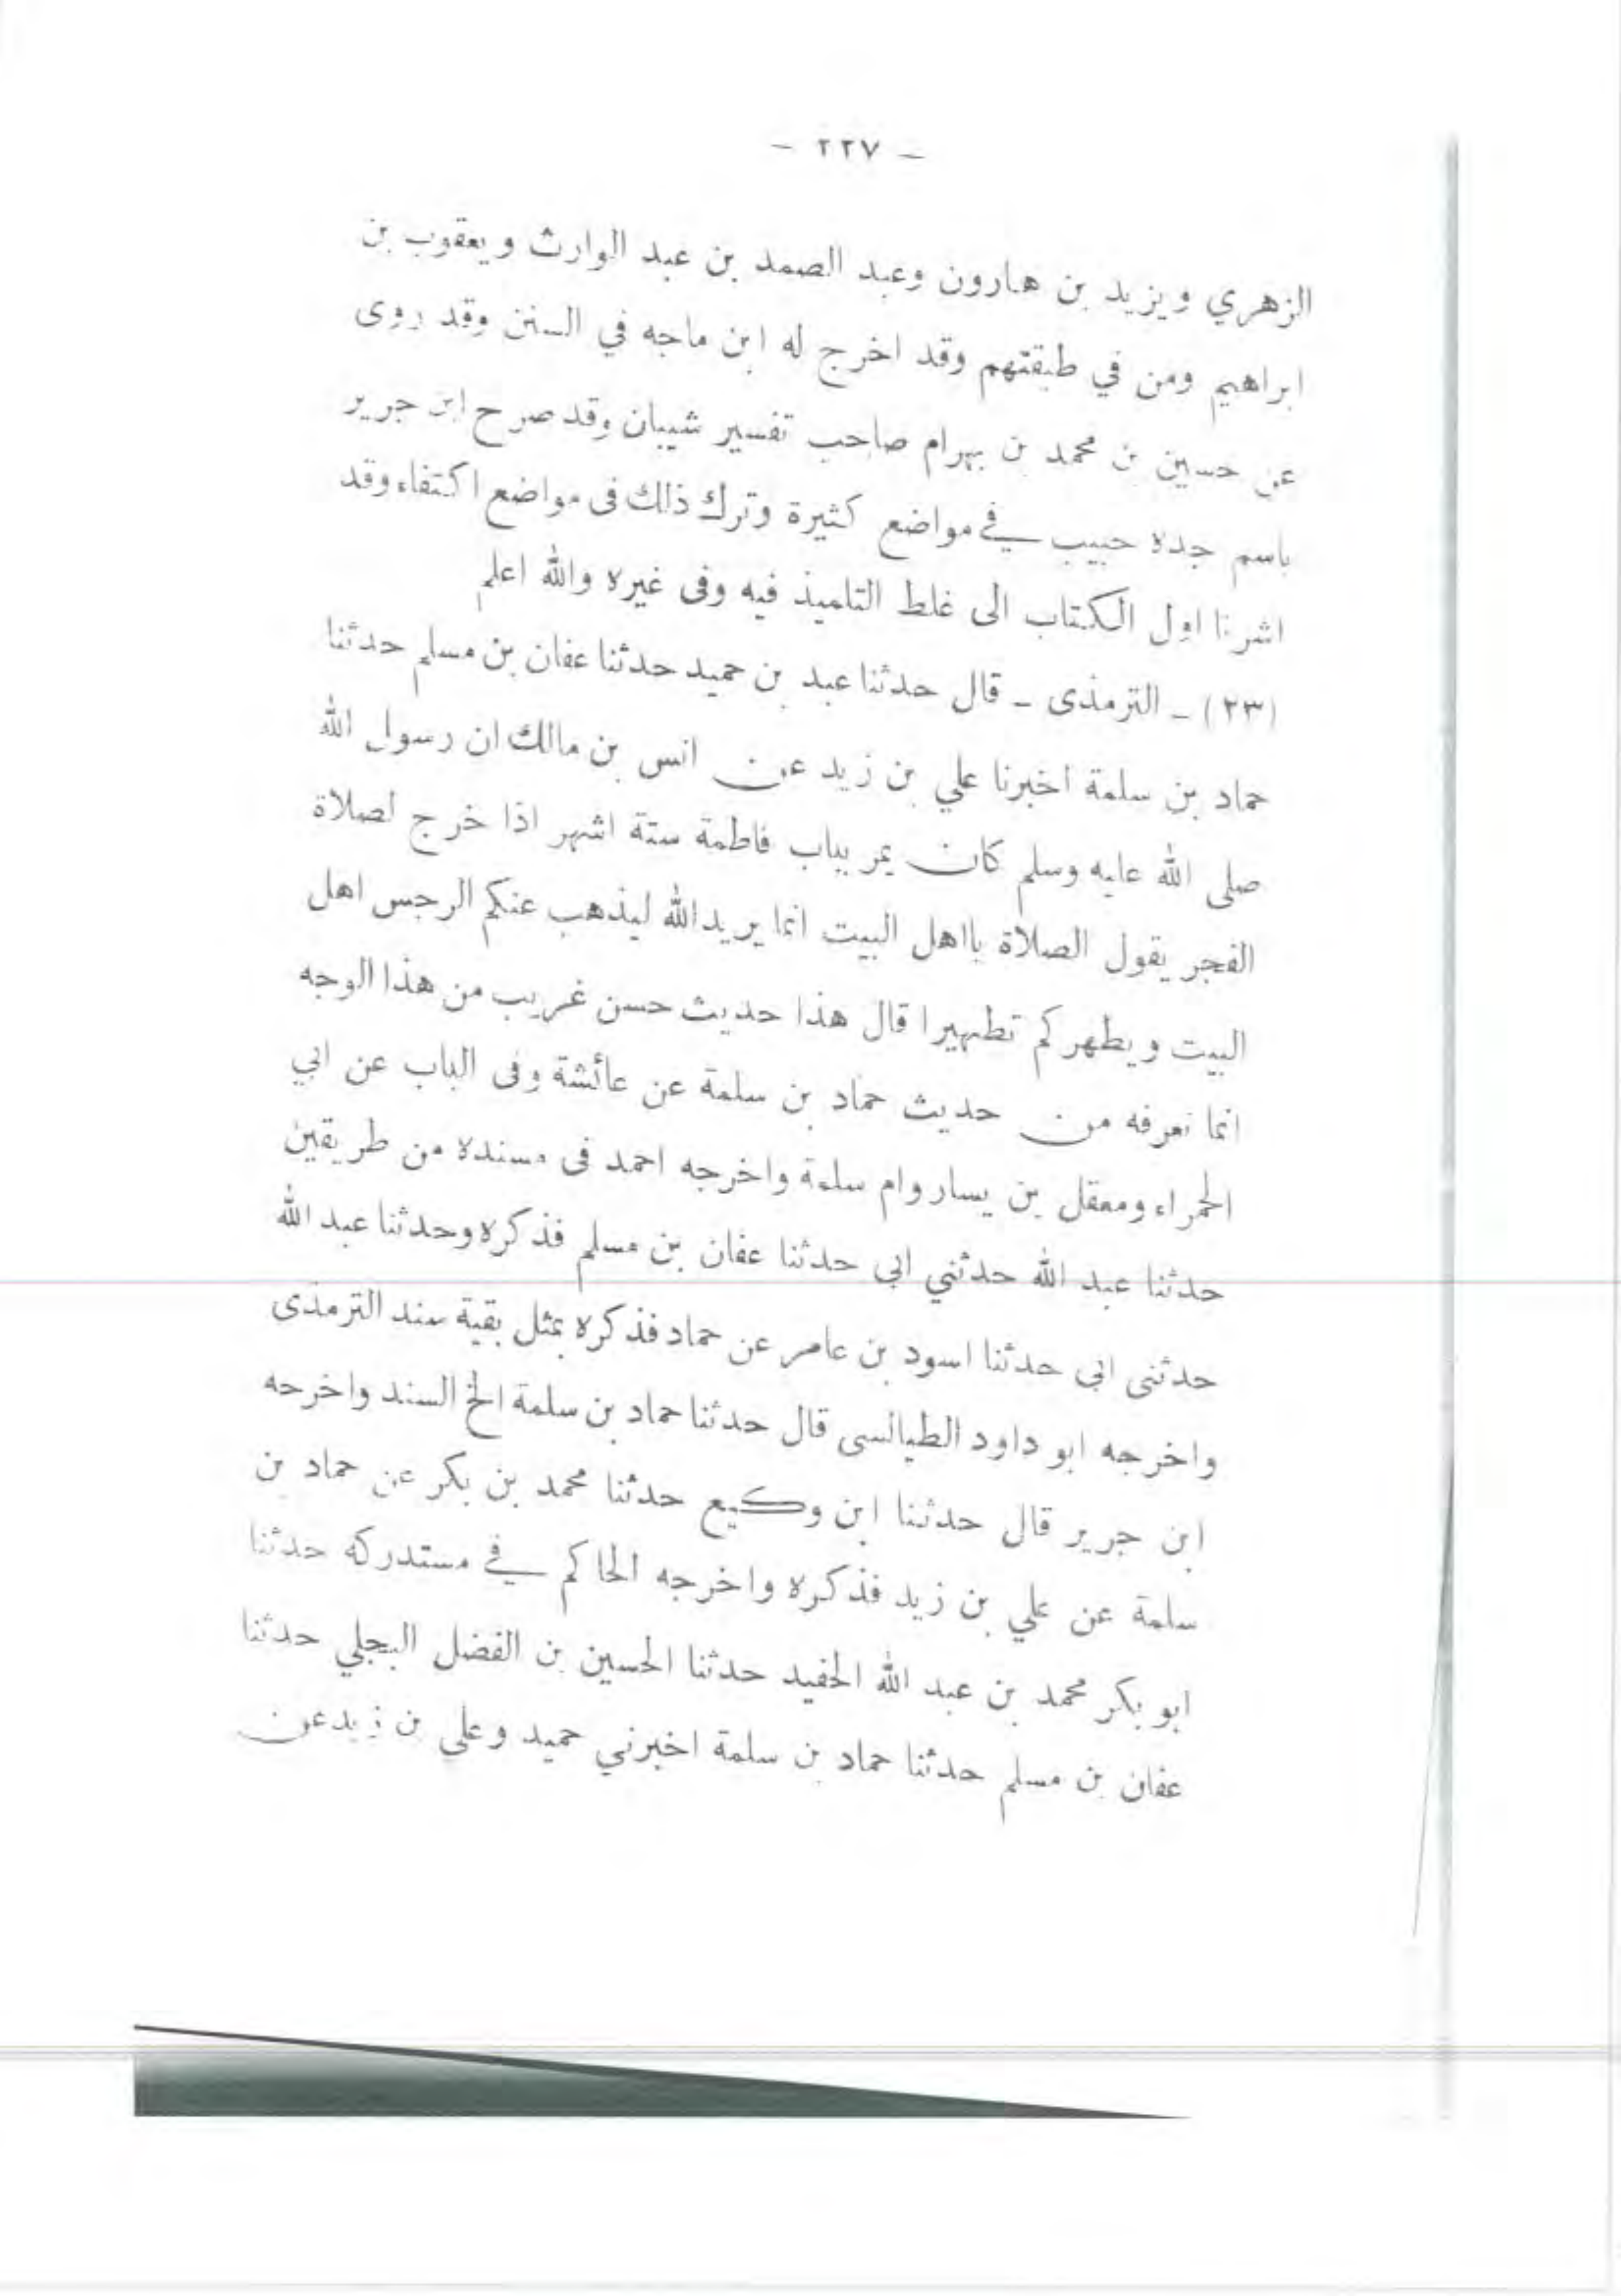 - ٢٢٧ -
الزهري ويزيد بن هارون وعبد الصمد بن عبد الوارث ويعقوب بن
ابراهيم ومن في طبقتهم وقد اخرج له ابن ماجه في السنن وقد روى
عن حسين بن محمد بن بهرام صاحب تفسير شيبان وقد صرح ابن جرير
باسم جده حبيب في مواضع كثيرة وترك ذلك فى مواضع اكتفاء وقد
اشرنا اول الكتاب الى غلط التلميذ فيه وفى غيره والله اعلم
(٢٣) - الترمذى - قال حدثنا عبد بن حميد حدثنا عفان بن مسلم حدثنا
حماد بن سلمة اخبرنا علي بن زيد عن انس بن مالك ان رسول الله
صلى الله عليه وسلم كان يمر بباب فاطمة ستة اشهر اذا خرج لصلاة
الفجر يقول الصلاة يااهل البيت انما يريد الله ليذهب عنكم الرجس اهل
البيت ويطهركم تطهيرا قال هذا حديث حسن غريب من هذا الوجه
انما نعرفه من حديث حماد بن سلمة عن عائشة وفى الباب عن ابي
الحمراء ومعقل بن يسار وام سلمة واخرجه احمد فى مسنده من طريقين
حدثنا عبد الله حدثني ابي حدثنا عفان بن مسلم فذكره وحدثنا عبد الله
حدثنى ابى حدثنا اسود بن عامر عن حماد فذكره بمثل بقية سند الترمذى
واخرجه ابو داود الطيالسى قال حدثنا حماد بن سلمة الخ السند واخرجه
ابن جرير قال حدثنا ابن وكيع حدثنا محمد بن بكر عن حماد بن
سلمة عن علي بن زيد فذكره واخرجه الحاكم في مستدركه حدثنا
ابو بكر محمد بن عبد الله الحفيد حدثنا الحسين بن الفضل البجلي حدثنا
عفان بن مسلم حدثنا حماد بن سلمة اخبرني حميد وعلي بن زيد عن